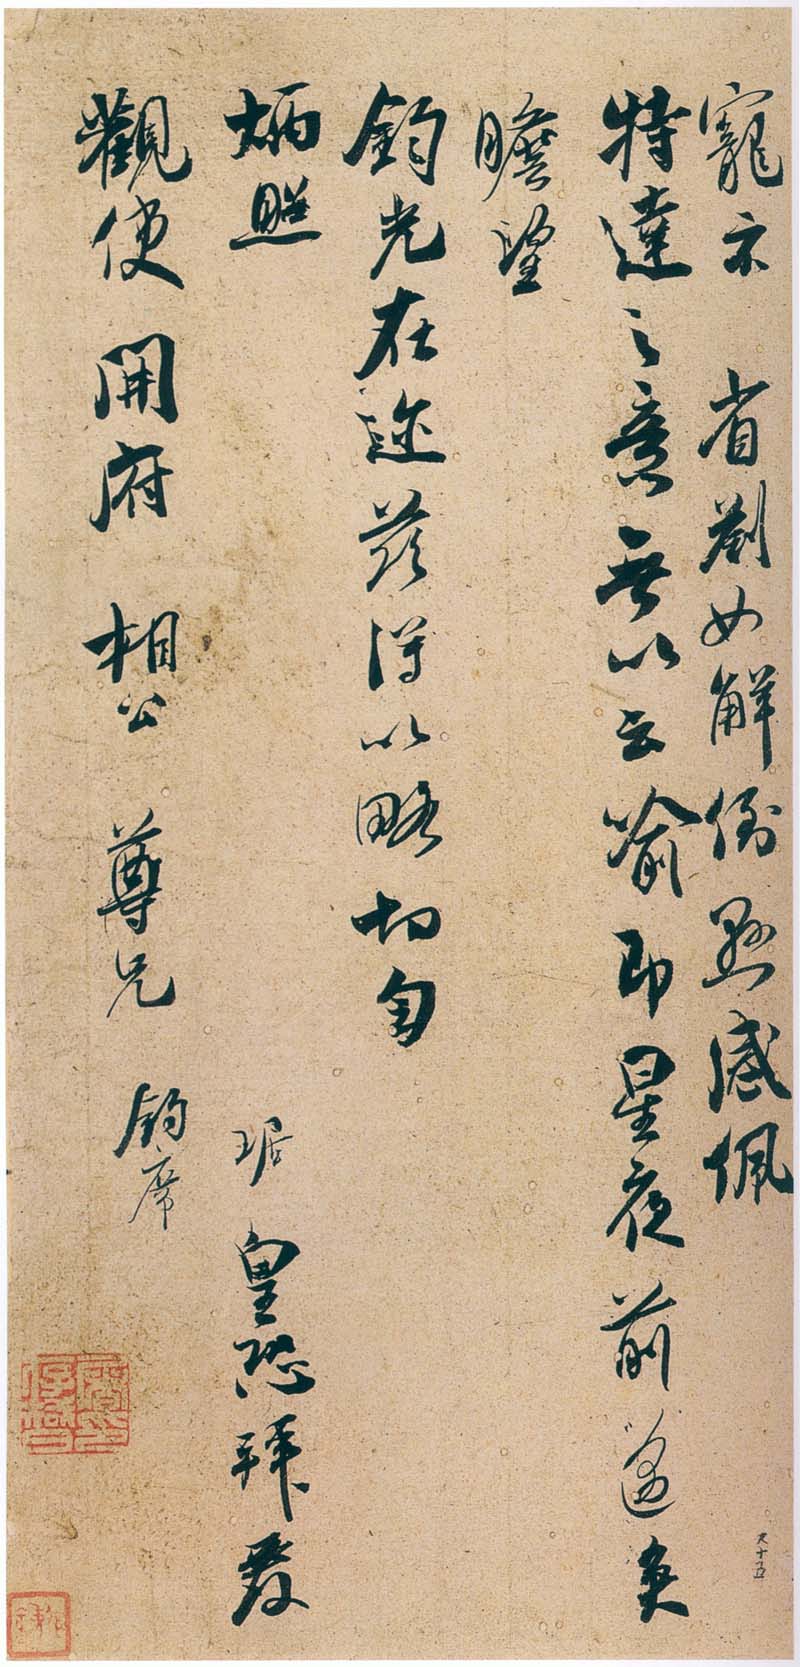 寵示 省劄如解倒懸感佩
特達之意無以云喻即星夜前邁矣
瞻望
鈞光在邇茲得以略切匄
炳照 琚 皇恐拜覆
觀使 開府 相公 尊兄 鈞席